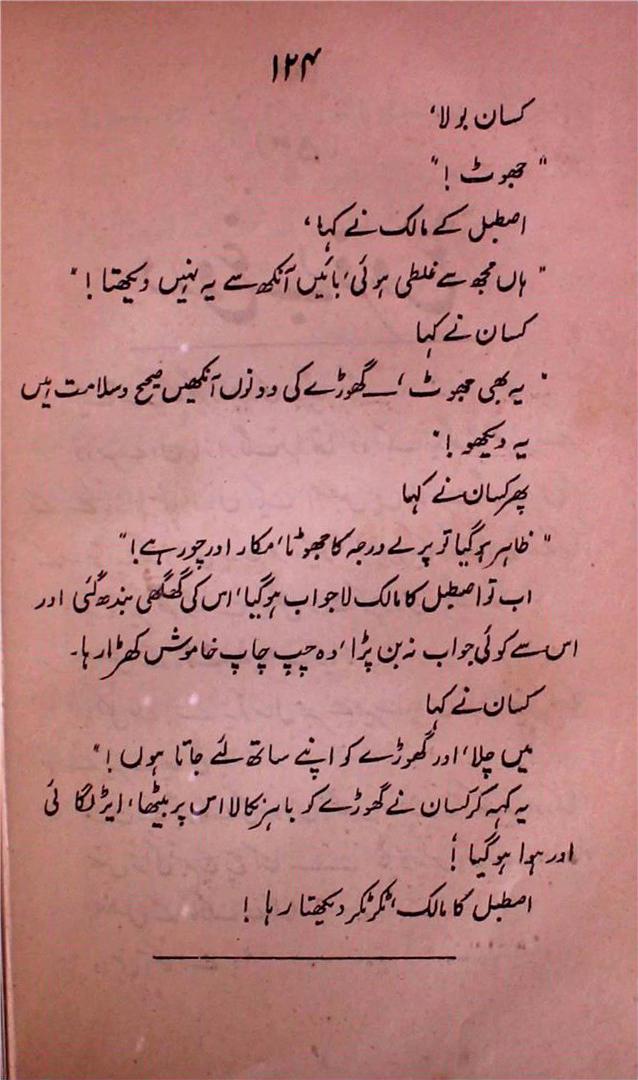 ۱۲۴
کسان بولا،
" جھوٹ !"
اصطبل کے مالک نے کہا،
" ہاں مجھ سے غلطی ہوئی، بائیں آنکھ سے یہ نہیں دیکھتا !"
کسان نے کہا
" یہ بھی جھوٹ، ــــ گھوڑے کی دونوں آنکھیں صحیح و سلامت ہیں
یہ دیکھو !"
پھر کسان نے کہا
" ظاہر ہوگیا تو پرلے درجہ کا جھوٹا، مکار اور چور ہے !"
اب تو اصطبل کا مالک لاجواب ہوگیا، اس کی گھگھی بندھ گئی اور
اس سے کوئی جواب نہ بن پڑا، وہ چپ چاپ خاموش کھڑا رہا۔
کسان نے کہا
میں چلا، اور گھوڑے کو اپنے ساتھ لئے جاتا ہوں !"
یہ کہہ کر کسان نے گھوڑے کو باہر نکالا اس پر بیٹھا، ایڑ لگائی
اور ہوا ہوگیا !
اصطبل کا مالک، ٹکر ٹکر دیکھتا رہا !